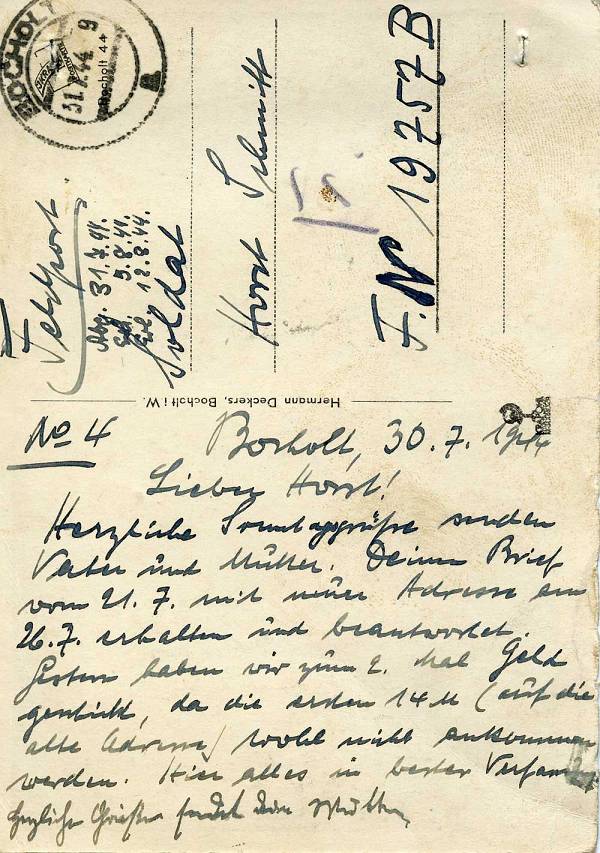 BOCHOLT
31.7.44 9
a
Bocholt 44
Feldpost
Abg. 31.7.44.
5.8.44.
12.8.44.
Soldat
Horst Schmitt
F. Nº 19757B
Hermann Deckers, Bocholt i W.
No 4
Bocholt, 30.7.1944
Lieber Horst!
Herzliche Sonntagsgrüße senden
Vater und Mutter. Deinen Brief
vom 21.7. mit neuer Adresse am
26.7. erhalten und beantwortet.
Gestern haben wir zum 2. Mal Geld
geschickt, da die ersten 14 M (auf die
alte Adresse) wohl nicht ankommen
werden. Hier alles in bester Verfassg.
Herzliche Grüße Mutter